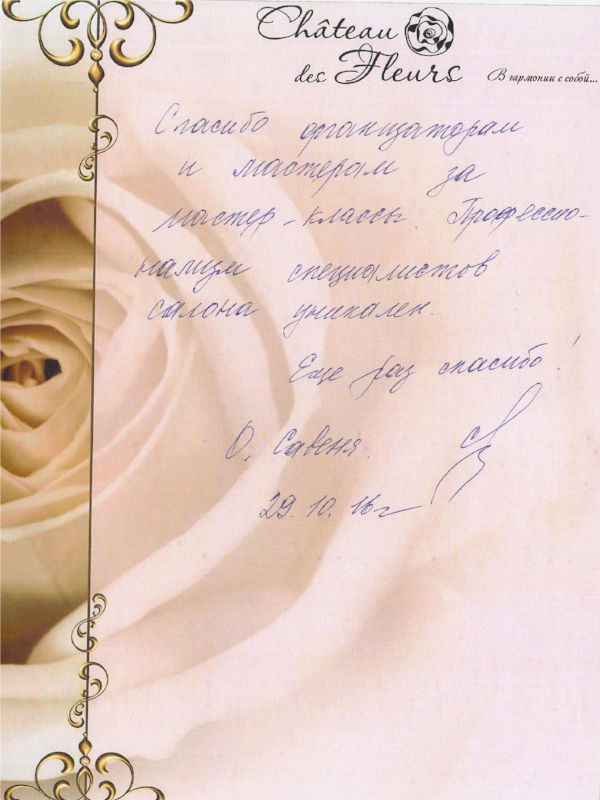 Château
des Fleurs
В гармонии с собой...
Спасибо организаторам
и мастерам за
мастер-классы. Професси-
нализм специалистов
салона уникален.
Еще раз спасибо!
О. Савеня.
29.10.16г